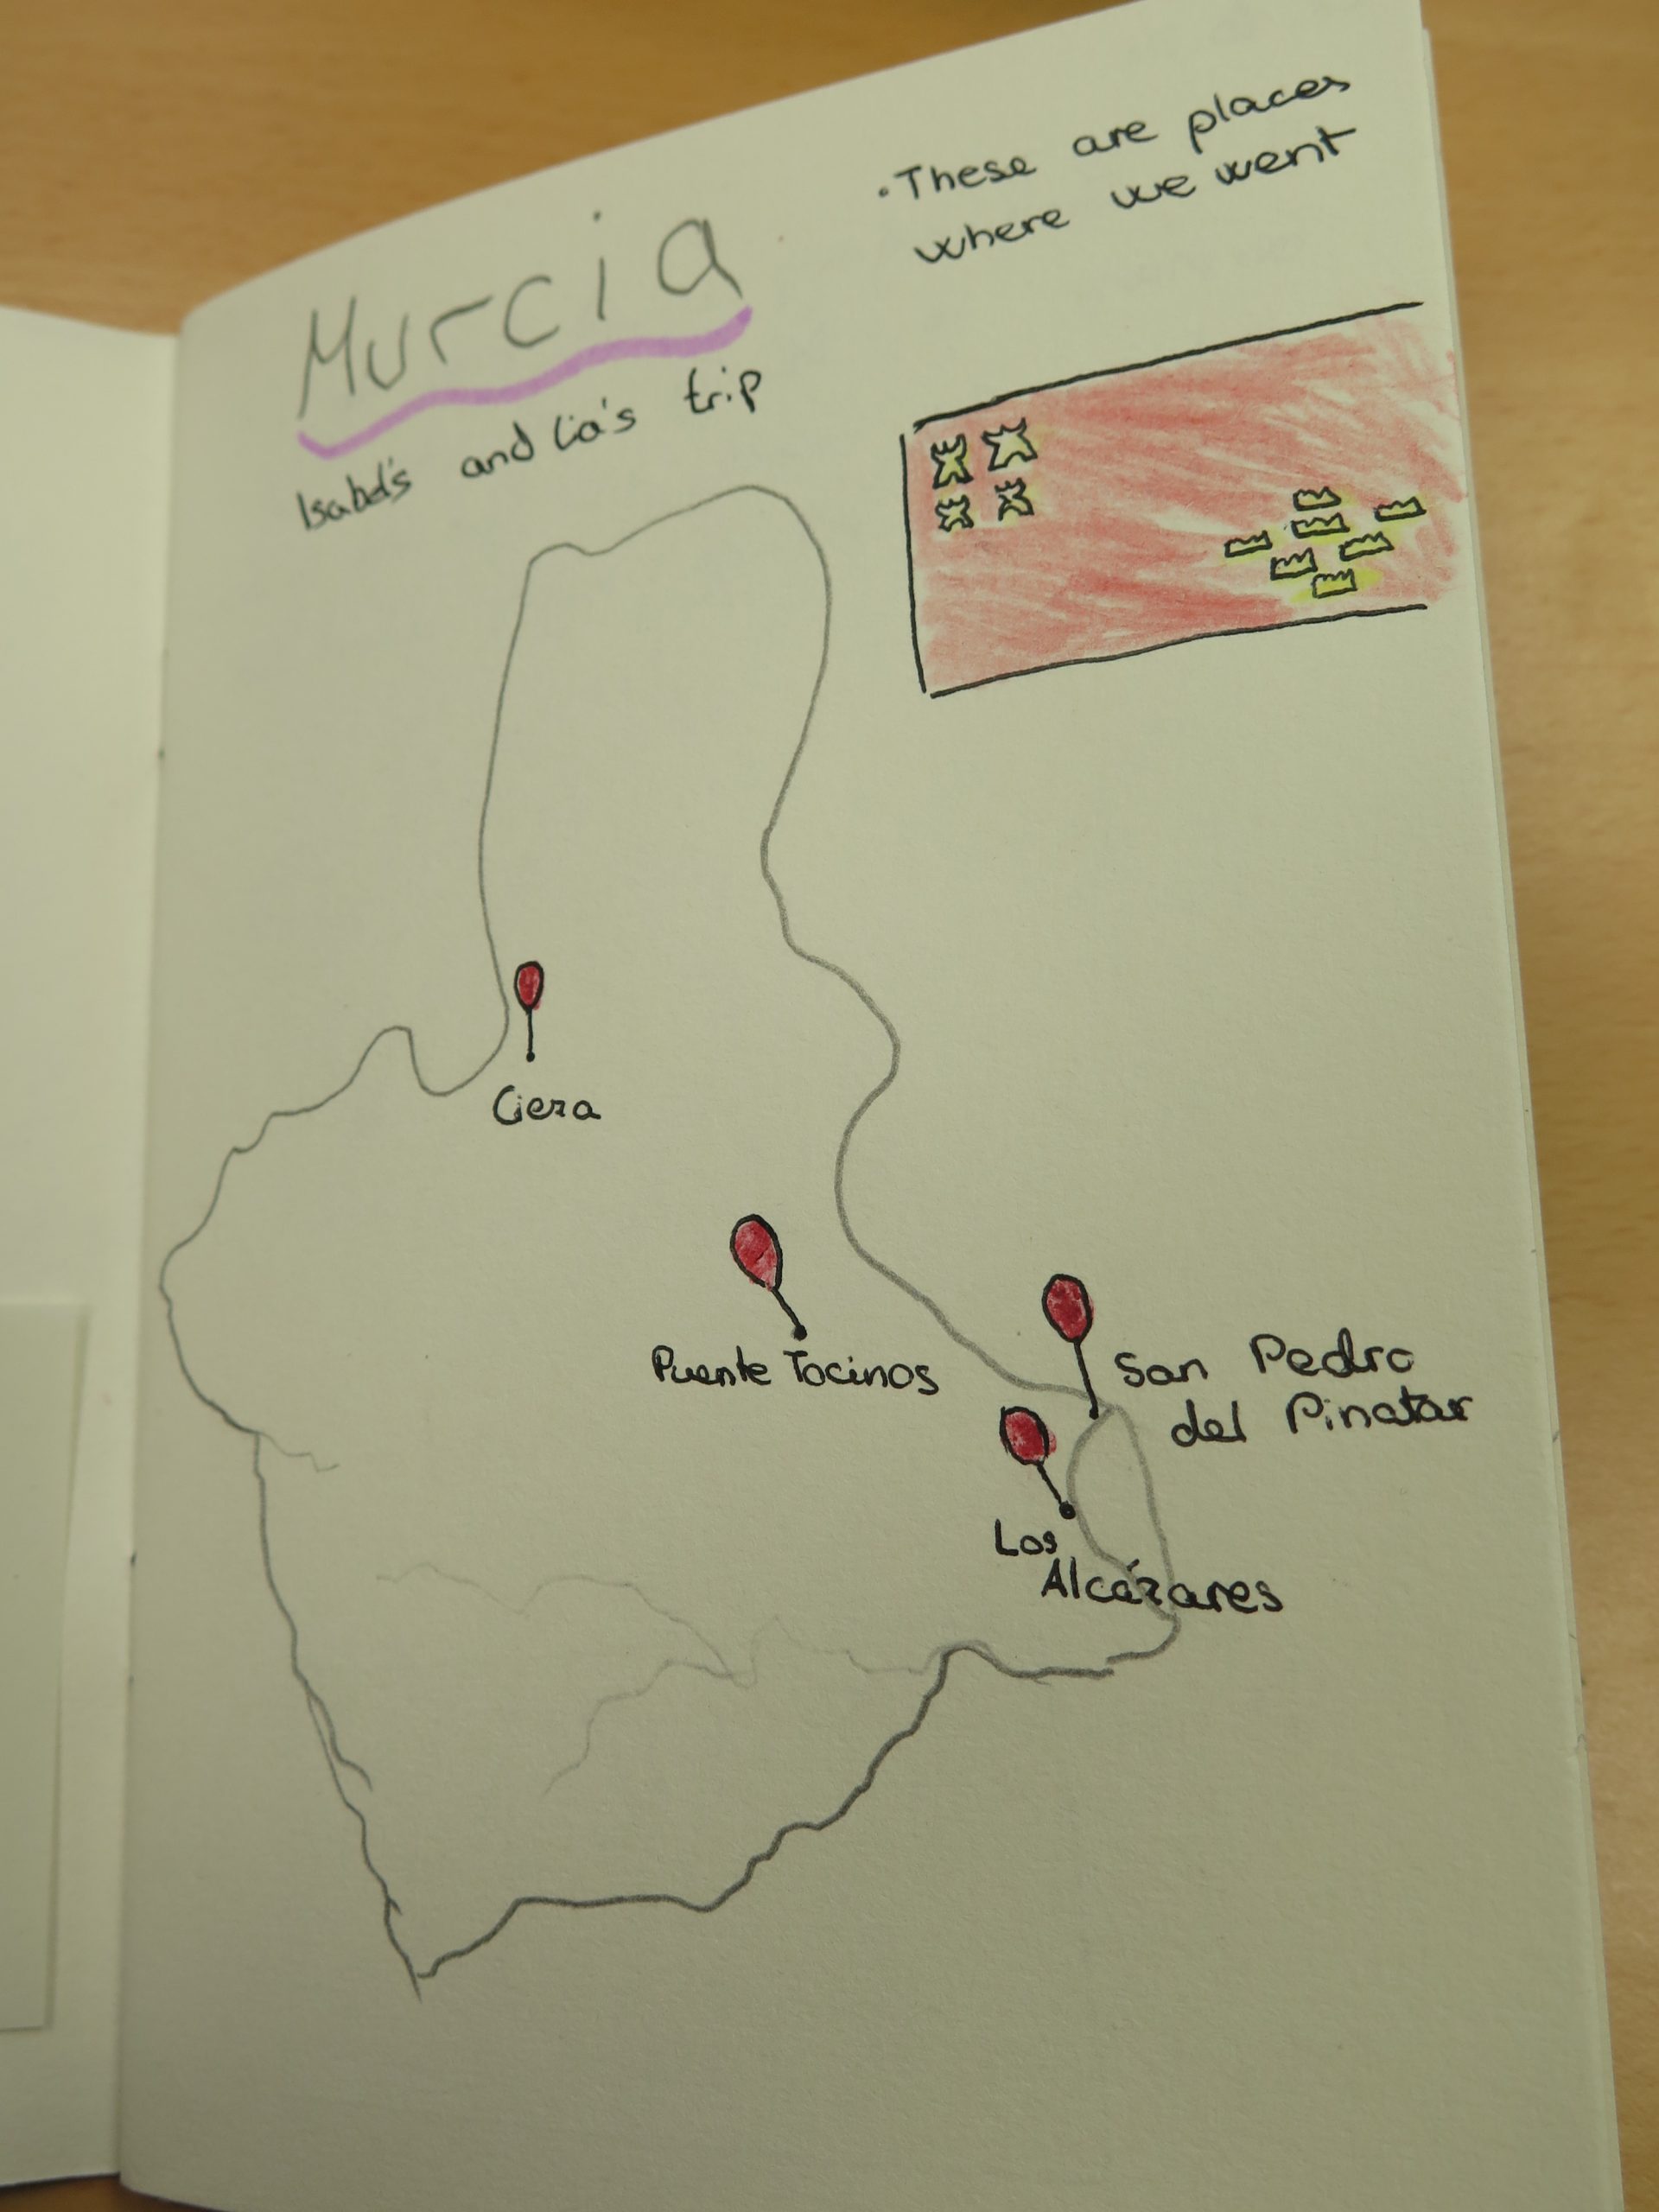 • These are places
where we went
Murcia
Isabel's and Lia's trip
Cieza
Puente Tocinos
San Pedro
del Pinatar
Los
Alcázares